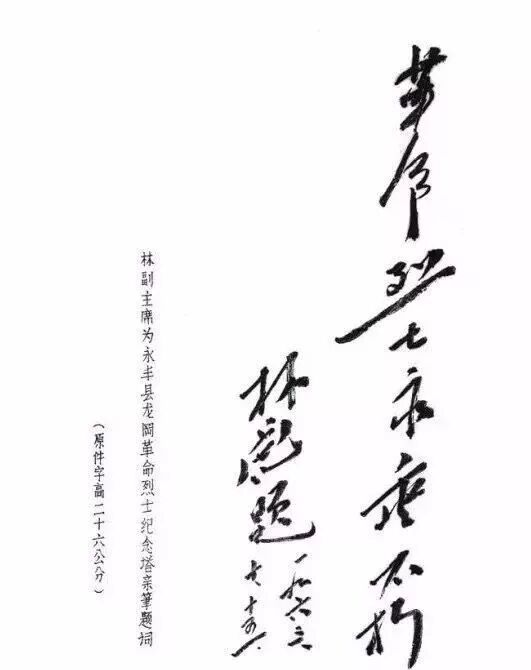 革命烈士永垂不朽
林彪题
一九六三
七·十五·
林副主席为永丰县龙冈革命烈士纪念塔亲筆题词
(原件字高二十六公分)